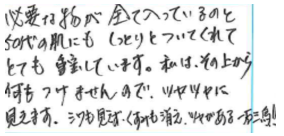 必要な物が全て入っているのと
50代の肌にもしっとりとついてくれて
とても重宝しています。私は、その上から
何もつけませんので、ツヤツヤに
見えます。シワも見えず、くすみも消え、ツヤがある一石三鳥!!